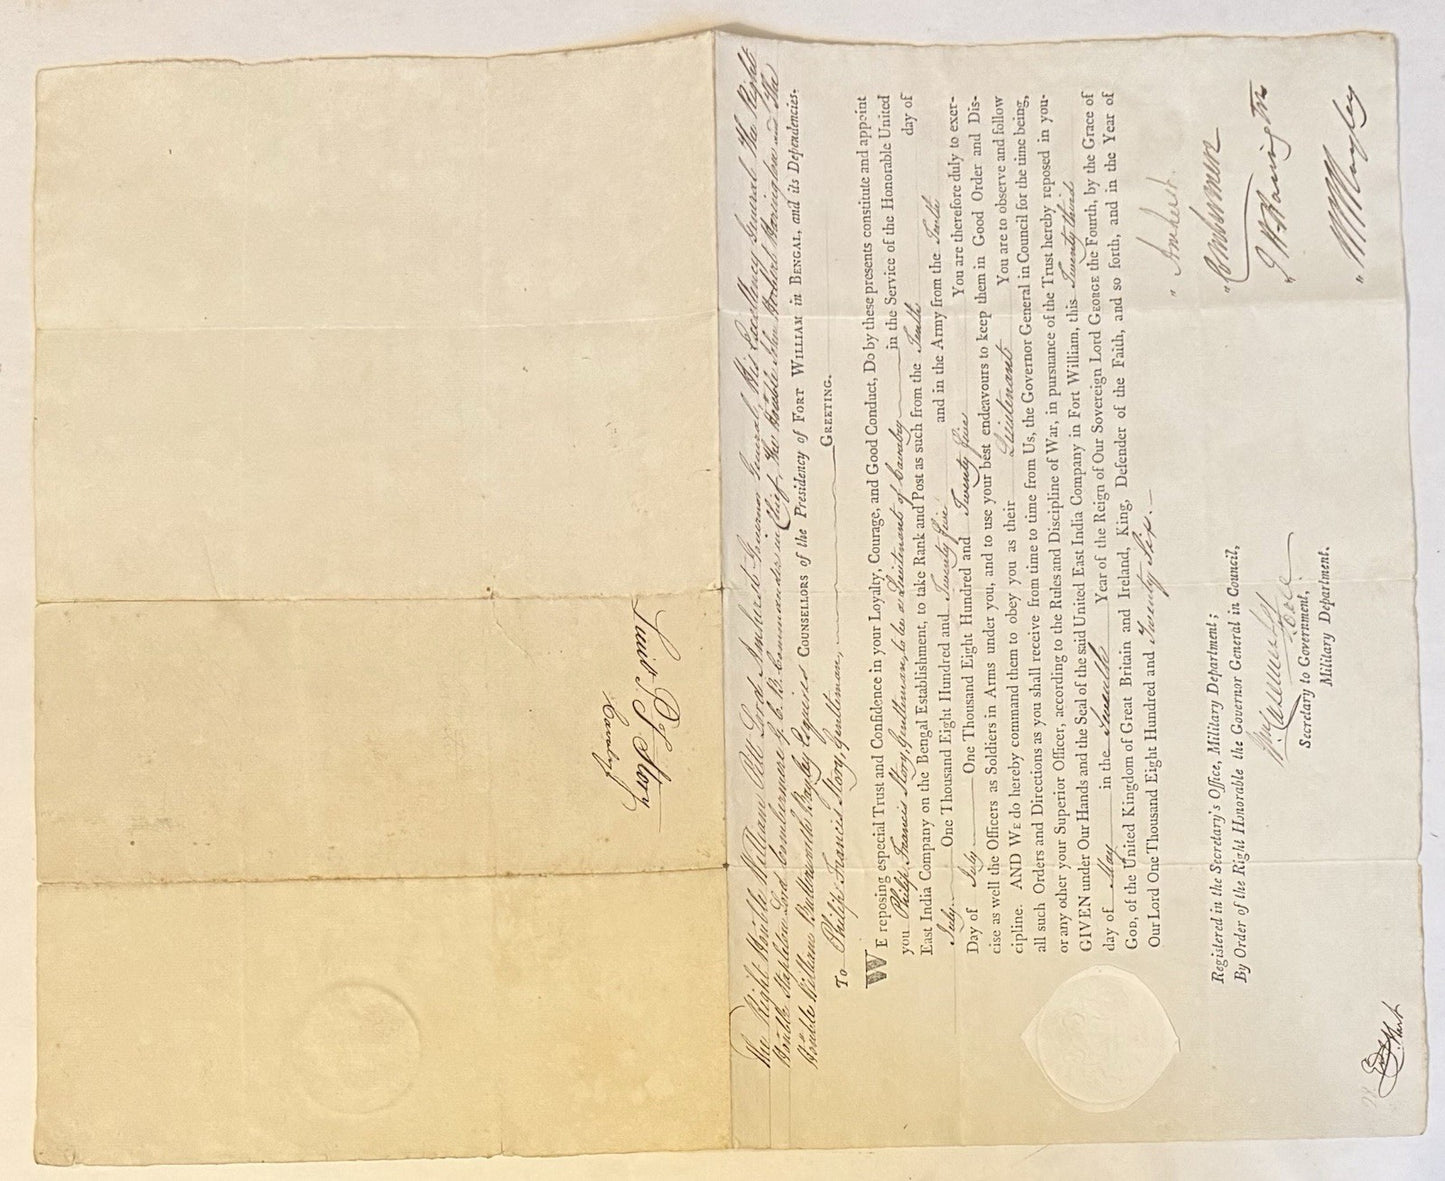 The Right Honble William Pitt Lord Amherst Governor General, His Excellency General The Right
Honble Stapleton Lord Combermere G. C. B. Commander in Chief, The Honble John Herbert Harington and The
Honble William Butterworth Bayley Esquires COUNSELLORS of the Presidency of FORT WILLIAM in BENGAL, and its Dependencies.
To Philip Francis Story, Gentleman, GREETING.
WE reposing especial Trust and Confidence in your Loyalty, Courage, and Good Conduct, Do by these presents constitute and appoint
you Philip Francis Story, Gentleman, to be a Lieutenant of Cavalry in the Service of the Honorable United
East India Company on the Bengal Establishment, to take Rank and Post as such from the Tenth day of
July One Thousand Eight Hundred and Twenty five and in the Army from the Tenth
Day of July One Thousand Eight Hundred and Twenty five You are therefore duly to exer-
cise as well the Officers as Soldiers in Arms under you, and to use your best endeavours to keep them in Good Order and Dis-
cipline. AND WE do hereby command them to obey you as their Lieutenant You are to observe and follow
all such Orders and Directions as you shall receive from time to time from Us, the Governor General in Council for the time being,
or any other your Superior Officer, according to the Rules and Discipline of War, in pursuance of the Trust hereby reposed in you-
GIVEN under Our Hands and the Seal of the said United East India Company in Fort William, this Twenty third
day of May in the Seventh Year of the Reign of Our Sovereign Lord GEORGE the Fourth, by the Grace of
GOD, of the United Kingdom of Great Britain and Ireland, King, Defender of the Faith, and so forth, and in the Year of
Our Lord One Thousand Eight Hundred and Twenty Six.
" Amherst.
" Combermere
" J H Harington
" W B Bayley
Registered in the Secretary's Office, Military Department;
By Order of the Right Honorable the Governor General in Council,
Wm Casement Col
Secretary to Government,
Military Department.
Lieut P F Story
Cavalry